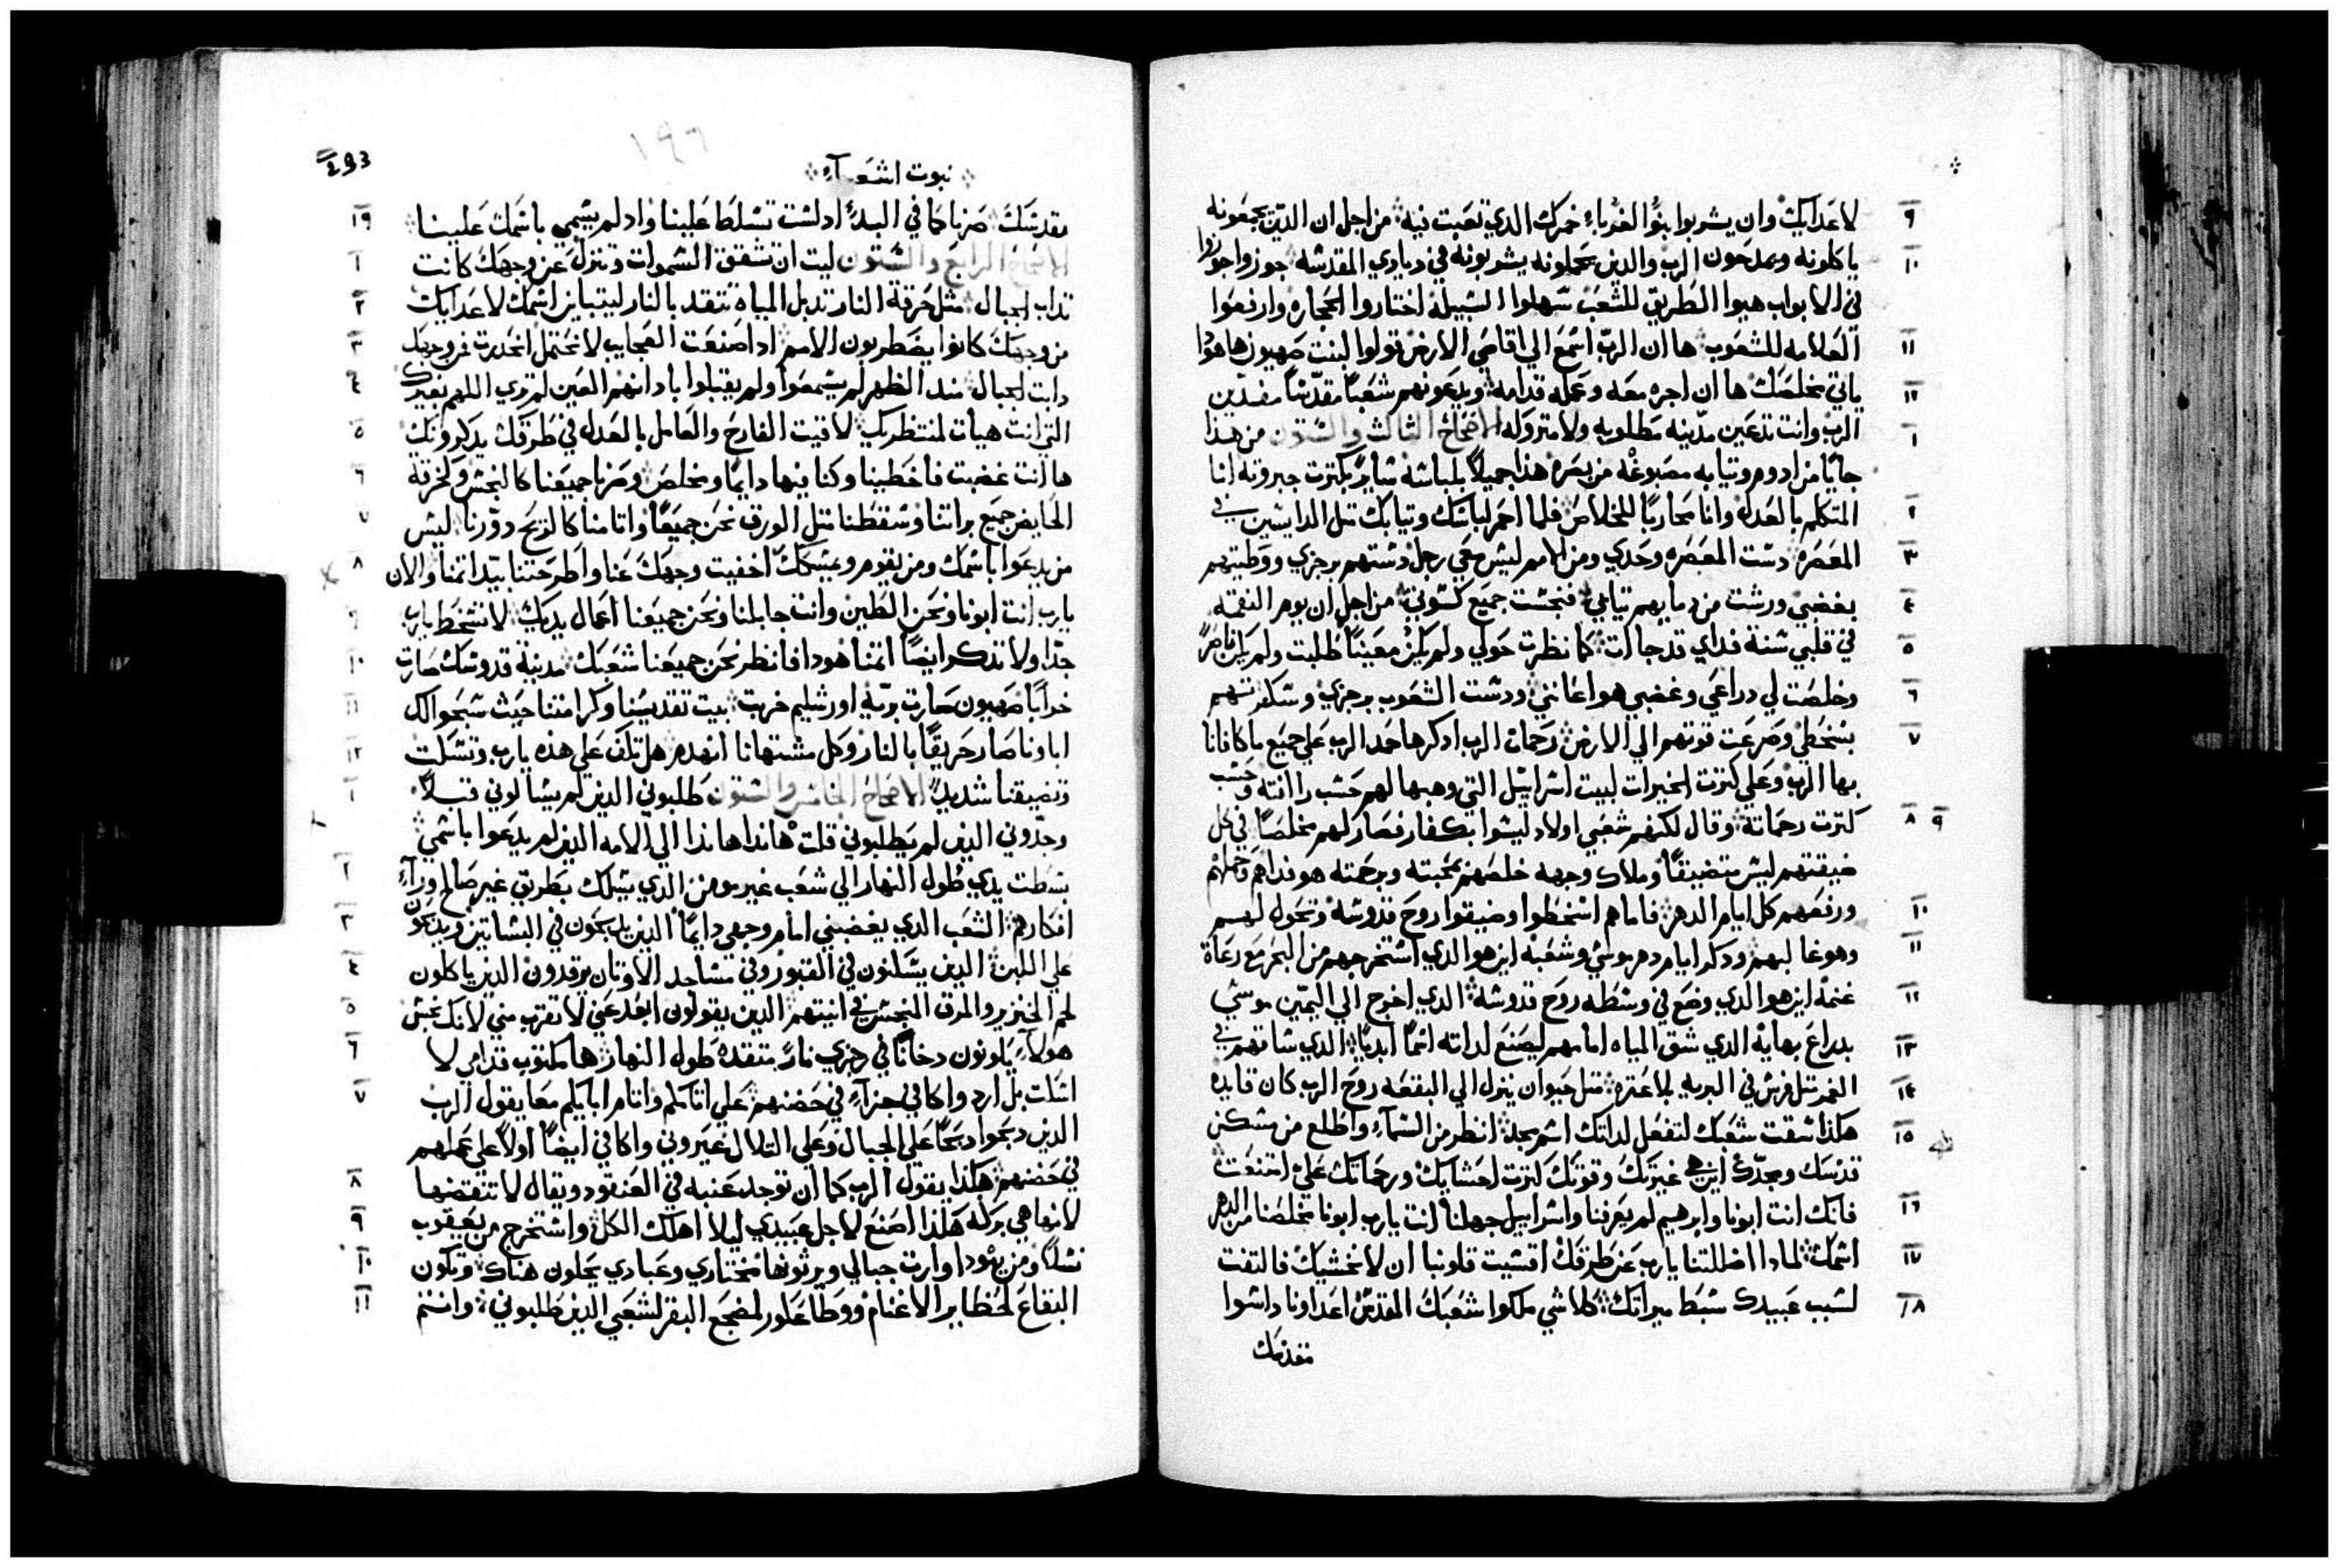 ٩ لاعدايك وان يشربوا بنوا الغرباء خمرك الدي تعبت فيه من اجل ان الدين يجمعونه
١٠ ياكلونه ويمدحون الرب والدين يحملونه يشربونه في دياري المقدسه جوزوا جوزوا
في الابواب هيوا الطريق للشعب سهلوا السبيل اختاروا الحجاره وارفعوا
١١ العلامه للشعوب ها ان الرب اسمع الي اقاصي الارض قولوا لبنت صهيون ها هودا
١٢ ياتي مخلصك ها ان اجره معه وعمله قدامه ويدعونهم شعبا مقدسا مفديين
١ الرب وانت تدعين مدينه مطلوبه ولا متروله الاصحاح الثالث والستون من هدا
جايا من ادوم وتيابه مصبوغه من بصره هدا جميلا بلباسه سايرا بكترت جبروته انا
٢ المتكلم بالعدل وانا محاربا للخلاص فلما احمر لباسك وتيابك متل الدايسين في
٣ المعصره دست المعصره وحدي ومن الامم ليس معي رجل دستهم برجزي ووطيتهم
٤ بغضبي ورشت من دمايهم تيابي فنجست جميع كسوتي من اجل ان يوم النقمه
٥ في قلبي سنة فداي قد جاات كما نظرت حولي ولم يكن معينا طلبت ولم يكن ناصرا
٦ وخلصت لي دراعي وغضبي هو اعانني ودست الشعوب برجزي وسكرتهم
٧ بسخطي وصرعت قوتهم الي الارض رحمات الرب ادكرها حمد الرب علي جميع ما كافانا
بها الرب وعلي كترت الخيرات لبيت اسراييل التي وهبها لهم حسب راافته وحسب
٨ ٩ كترت رحماته وقال لكنهم شعبي اولاد ليسوا بكفار فصار لهم مخلصا في كل
ضيقتهم ليس متضيقا وملاك وجهه خلصهم بمحبته وبرحمته هو فداهم وحملهم
١٠ ورفعهم كل ايام الدهر فاما هم اسخطوا وضيقوا روح قدوسه وتحول لهم
١١ وهو غالبهم ودكر ايام دهر موسي وشعبه اين هو الدي استخرجهم من البحر مع رعاة
١٢ غنمه اين هو الدي وضع في وسطه روح قدوسه الدي اخرج الي اليمين موسي
١٣ بدراع بهايه الدي شق المياه امامهم ليصنع لداته اسما ابديا الدي ساقهم في
١٤ الغمر متل فرس في البريه بلا عتره متل حيوان ينزل الي البقعه روح الرب كان قايده
١٥ هكدا سقت شعبك لتفعل لداتك اسم مجد انظر من السماء واطلع من مسكن
قدسك ومجدك اين هي غيرتك وقوتك كترت احشايك ورحماتك علي امتنعت
١٦ فانك انت ابونا وابرهيم لم يعرفنا واسراييل جهلنا انت يارب ابونا مخلصنا من الدهر
١٧ اسمك لمادا اضللتنا يارب عن طرقك اقسيت قلوبنا ان لا نخشيك فالتفت
١٨ لسبب عبيدك سبط ميراتك كلا شي ملكوا شعبك المقدس اعداونا داسوا
مقدسك
نبوت اشعياء
493
١٩٦
١٩ مقدسك صرنا كما في البدء اد لست تسلط علينا واد لم يسمي باسمك علينا
١ الاصحاح الرابع والستون ليت ان تشقق السموات وتنزل عن وجهك كانت
٢ تداب الجبال متل حرقة النار تدبل المياه تتقد بالنار ليتباين اسمك لاعدايك
٣ من وجهك كانوا يضطربون الامم ادا صنعت العجايب لا نحتمل انحدرت من وجهك
٤ دابت الجبال مند الظهر لم يسمعوا ولم يقبلوا بادانهم العين لم تري اللهم بغيرك
٥ التي انت هيات لمنتظريك لاقيت الفارح والعامل بالعدل في طرقك يدكرونك
٦ ها انت غضبت فاخطينا وكنا فيها دايما ونخلص وصرنا جميعنا كالنجس وكخرقة
٧ الحايض جميع براتنا وسقطنا متل الورق نحن جميعا واتامنا كالريح دورنا ليس
٨ من يدعوا باسمك ومن يقوم ويمسكك اخفيت وجهك عنا واطرحتنا بيد اتمنا والان
٩ يارب انت ابونا ونحن الطين وانت جابلنا ونحن جميعنا اعمال يديك لا تسخط يارب
١٠ جدا ولا تدكر ايضا اتمنا هودا فانظر نحن جميعنا شعبك مدينة قدوسك صارت
١١ خرابا صهيون صارت بريه اورشليم خربت بيت تقديسنا وكرامتنا حيث سبحوا لك
١٢ اباونا صار حريقا بالنار وكل مشتهانا انهدم هل تكف علي هده يارب وتسكت
١ وتضيقنا شديدا الاصحاح الخامس والستون طلبوني الدين لم يسالوني قبلا
وجدوني الدين لم يطلبوني قلت هانداهاندا الي الامه الدين لم يدعوا باسمي
٢ بسطت يدي طول النهار الي شعب غير مومن الدي يسلك بطريق غير صالح وراء
٣ افكارهم الشعب الدي يغضبني امام وجهي دايما الدين يدبحون في البساتين ويدبحون
٤ علي اللبن الدين يسكنون في القبور وفي مساجد الاوتان يرقدون الدين ياكلون
٥ لحم الخنزير والمرق النجس في انيتهم الدين يقولون ابعد عني لا تقرب مني لانك نجس
٦ هولاء يكونون دخانا في رجزي نارا متقده طول النهار ها مكتوب قدامي لا
٧ اسكت بل ارد واكافي جزاء في حضنهم علي اتامكم واتام ابايكم معا يقول الرب
الدين دبحوا دبحا علي الجبال وعلي التلال عيروني واكافي ايضا اولا علي عملهم
٨ في حضنهم هكدا يقول الرب كما ان توجد عنبه في العنقود ويقال لا تنقضها
٩ لانها هي بركه هكدا اصنع لاجل عبيدي ليلا اهلك الكل واستخرج من يعقوب
١٠ نسلا ومن يهودا وارت جبالي ويرثونها مختاري وعبادي يحلون هناك وتكون
١١ البقاع لحظاير الاغنام ووطا عاور لمضجع البقر لشعبي الدين طلبوني وانتم